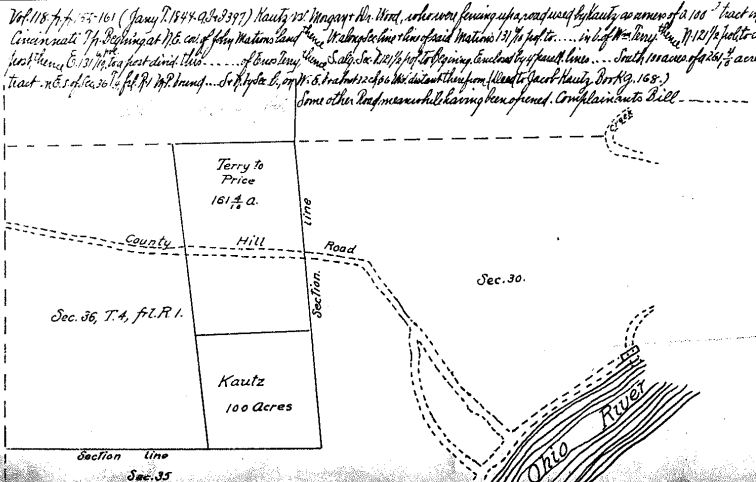 Vol. 118 p.p. 155-161 (Jany T. 1844 Kautz vs. Morgan + Wm. Wood, who were fencing up a road used by Kautz as owners of a 100 tract in
Cincinnati Tp. Begining at N.E. cor of John Matsons land thence W along Sec line + line of said Matsons 131 ½ pol to ..... in l. of Wm Terry thence N. 121 ½ pol to a
post thence E. 131 ½ to a post divid. this ...... of Enos Terry thence S. alg. Sec. l. 121 ½ pol to Begining. Enclosed by 4 paralll. lines .... South 100 acres of a 261 acre
tract - N.E. of Sec 36 T4 frl. R1 bound .... (Deed to Jacob Kautz Book 9. 168.)
Some other Road meanwhile having been opened. Complainants Bill
Creek
Terry to
Price
161 4/10 a.
County Hill Road
Section line
Sec. 30.
Sec. 36, T. 4, frl. R 1.
Kautz
100 Acres
Ohio River
Section line
Sec. 35